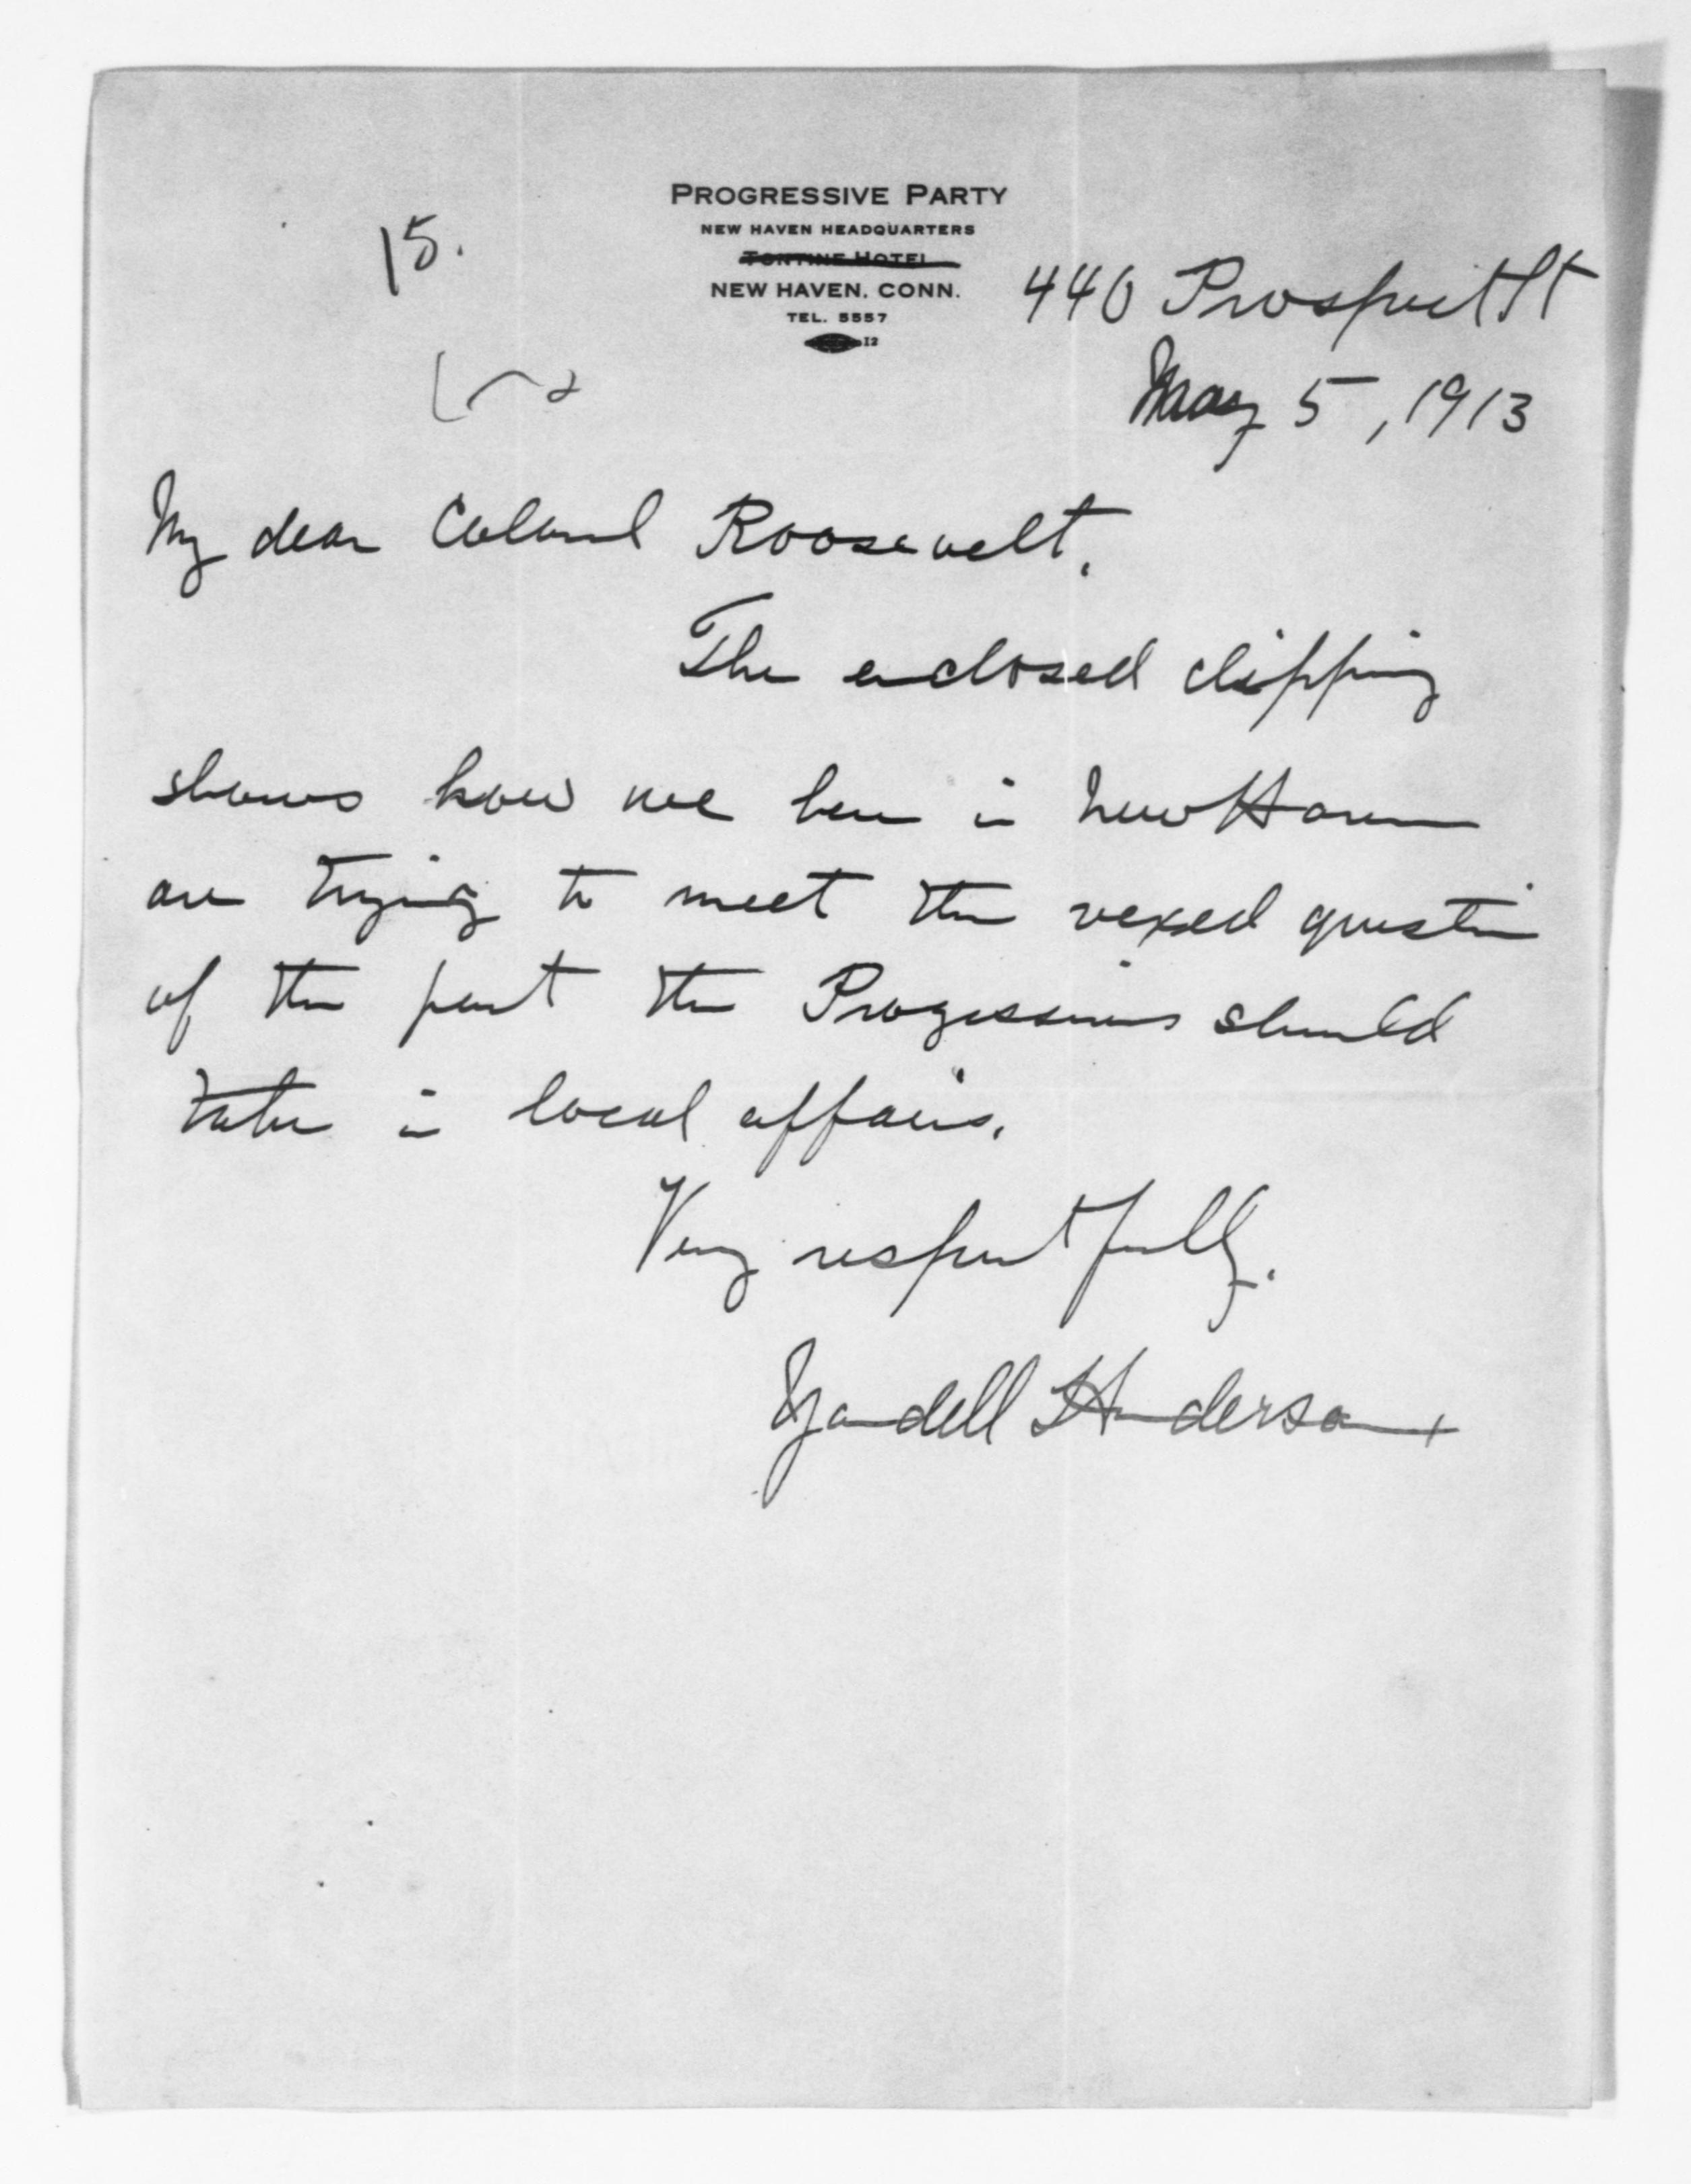 PROGRESSIVE PARTY
NEW HAVEN HEADQUARTERS
TONTINE HOTEL
NEW HAVEN, CONN.
TEL. 5557
12
15.
440 Prospect St
May 5, 1913
My dear Colonel Roosevelt,
The enclosed clipping
shows how we here in New Haven
are trying to meet the vexed question
of the part the Progressives should
take in local affairs.
Very respectfully.
Yandell Henderson